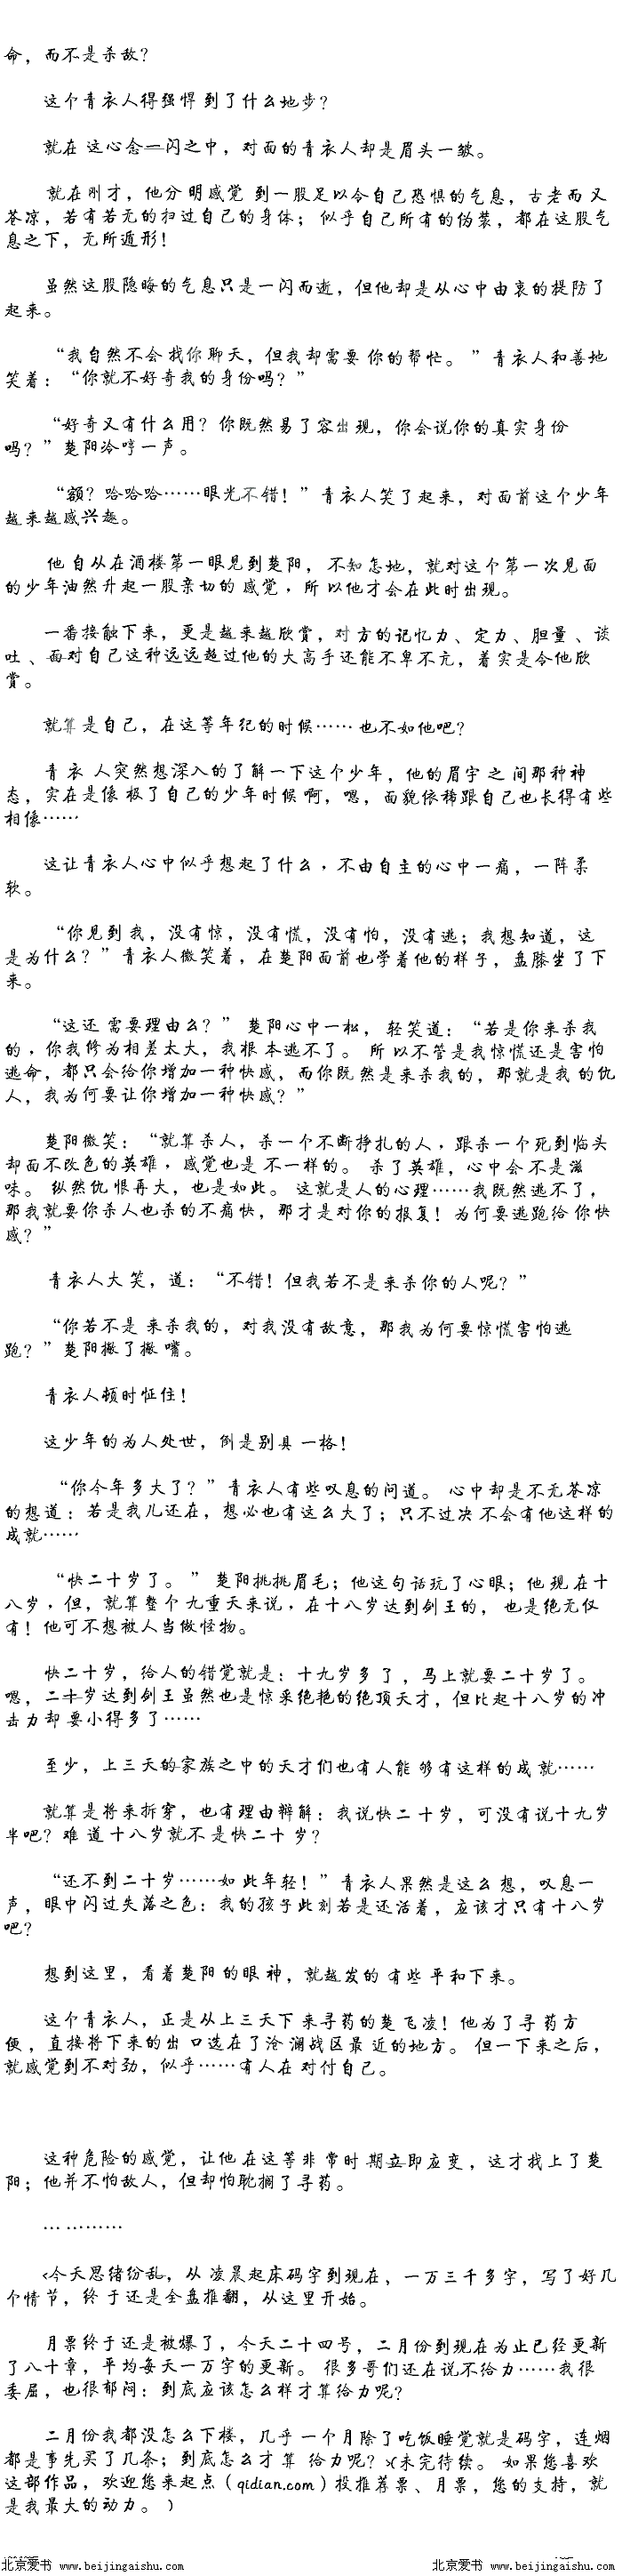 命，而不是杀敌？
这个青衣人得强悍到了什么地步？
就在这心念一闪之中，对面的青衣人却是眉头一皱。
就在刚才，他分明感觉到一股足以令自己恐惧的气息，古老而又
苍凉，若有若无的扫过自己的身体；似乎自己所有的伪装，都在这股气
息之下，无所遁形！
虽然这股隐晦的气息只是一闪而逝，但他却是从心中由衷的提防了
起来。
“我自然不会找你聊天，但我却需要你的帮忙。”青衣人和善地
笑着：“你就不好奇我的身份吗？”
“好奇又有什么用？你既然易了容出现，你会说你的真实身份
吗？”楚阳冷哼一声。
“额？哈哈哈……眼光不错！”青衣人笑了起来，对面前这个少年
越来越感兴趣。
他自从在酒楼第一眼见到楚阳，不知怎地，就对这个第一次见面
的少年油然升起一股亲切的感觉，所以他才会在此时出现。
一番接触下来，更是越来越欣赏，对方的记忆力、定力、胆量、谈
吐、面对自己这种远远超过他的大高手还能不卑不亢，着实是令他欣
赏。
就算是自己，在这等年纪的时候……也不如他吧？
青衣人突然想深入的了解一下这个少年，他的眉宇之间那种神
态，实在是像极了自己的少年时候啊，嗯，面貌依稀跟自己也长得有些
相像……
这让青衣人心中似乎想起了什么，不由自主的心中一痛，一阵柔
软。
“你见到我，没有惊，没有慌，没有怕，没有逃；我想知道，这
是为什么？”青衣人微笑着，在楚阳面前也学着他的样子，盘膝坐了下
来。
“这还需要理由么？”楚阳心中一松，轻笑道：“若是你来杀我
的，你我修为相差太大，我根本逃不了。所以不管是我惊慌还是害怕
逃命，都只会给你增加一种快感，而你既然是来杀我的，那就是我的仇
人，我为何要让你增加一种快感？”
楚阳微笑：“就算杀人，杀一个不断挣扎的人，跟杀一个死到临头
却面不改色的英雄，感觉也是不一样的。杀了英雄，心中会不是滋
味。纵然仇恨再大，也是如此。这就是人的心理……我既然逃不了，
那我就要你杀人也杀的不痛快，那才是对你的报复！为何要逃跑给你快
感？”
青衣人大笑，道：“不错！但我若不是来杀你的人呢？”
“你若不是来杀我的，对我没有敌意，那我为何要惊慌害怕逃
跑？”楚阳撇了撇嘴。
青衣人顿时怔住！
这少年的为人处世，倒是别具一格！
“你今年多大了？”青衣人有些叹息的问道。心中却是不无苍凉
的想道：若是我儿还在，想必也有这么大了；只不过决不会有他这样的
成就……
“快二十岁了。”楚阳挑挑眉毛；他这句话玩了心眼；他现在十
八岁，但，就算整个九重天来说，在十八岁达到剑王的，也是绝无仅
有！他可不想被人当做怪物。
快二十岁，给人的错觉就是：十九岁多了，马上就要二十岁了。
嗯，二十岁达到剑王虽然也是惊采绝艳的绝顶天才，但比起十八岁的冲
击力却要小得多了……
至少，上三天的家族之中的天才们也有人能够有这样的成就……
就算是将来拆穿，也有理由辩解：我说快二十岁，可没有说十九岁
半吧？难道十八岁就不是快二十岁？
“还不到二十岁……如此年轻！”青衣人果然是这么想，叹息一
声，眼中闪过失落之色：我的孩子此刻若是还活着，应该才只有十八岁
吧？
想到这里，看着楚阳的眼神，就越发的有些平和下来。
这个青衣人，正是从上三天下来寻药的楚飞凌！他为了寻药方
便，直接将下来的出口选在了沧澜战区最近的地方。但一下来之后，
就感觉到不对劲，似乎……有人在对付自己。
这种危险的感觉，让他在这等非常时期立即应变，这才找上了楚
阳；他并不怕敌人，但却怕耽搁了寻药。
… ………
<今天思绪纷乱，从凌晨起床码字到现在，一万三千多字，写了好几
个情节，终于还是全盘推翻，从这里开始。
月票终于还是被爆了，今天二十四号，二月份到现在为止已经更新
了八十章，平均每天一万字的更新。很多哥们还在说不给力……我很
委屈，也很郁闷：到底应该怎么样才算给力呢？
二月份我都没怎么下楼，几乎一个月除了吃饭睡觉就是码字，连烟
都是事先买了几条；到底怎么才算给力呢？>(未完待续。如果您喜欢
这部作品，欢迎您来起点（qidian.com）投推荐票、月票，您的支持，就
是我最大的动力。）
北京爱书 www.beijingaishu.com 北京爱书 www.beijingaishu.com